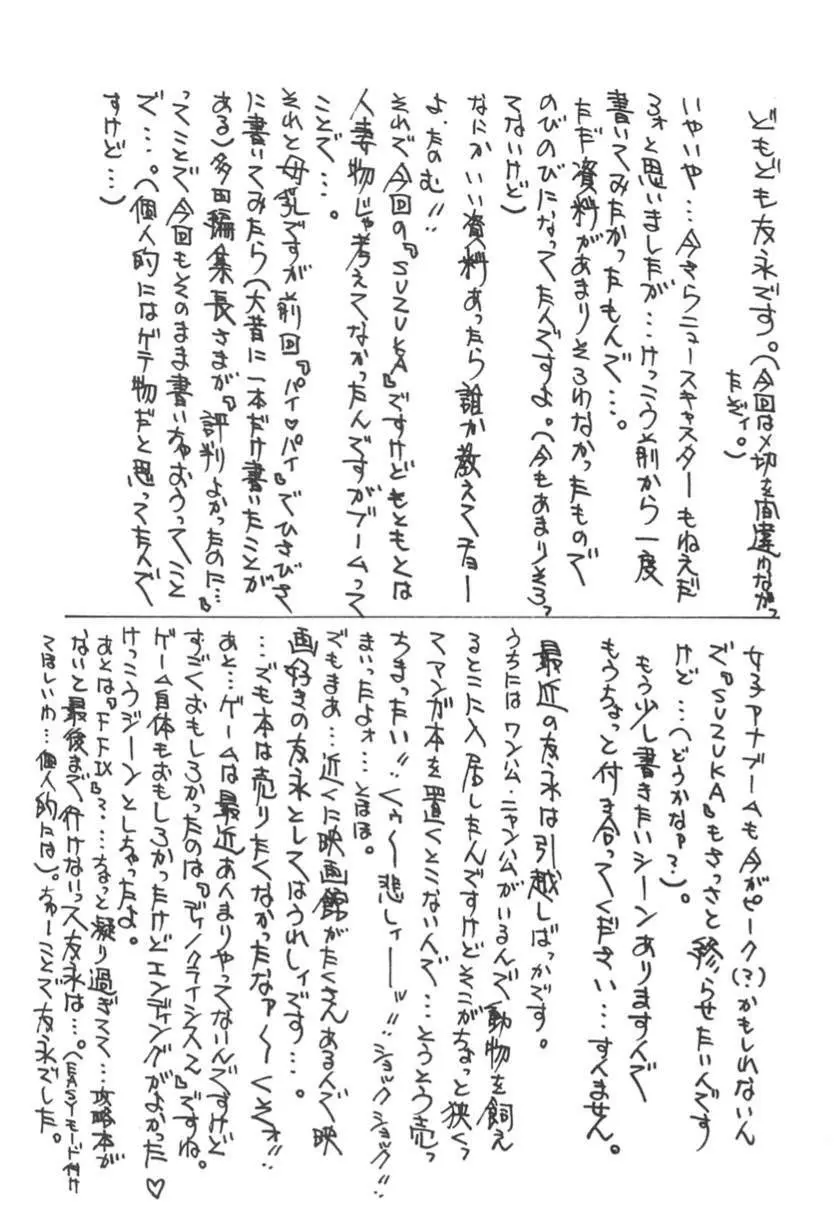 どもども友永です。(今回は〆切を間違わなかっ
たぞィ。)
いやいや…今さらニュースキャスターもねえだ
ろォと思いましたが…けっこう前から一度
書いてみたかったもんで…。
ただ資料があまりそろわなかったもので
のびのびになってたんですよ。(今もあまりそろっ
てないけど)
なにかいい資料あったら誰か教えてチョー
よ.たのむ!!
それで今回の『SUZUKA』ですけどもともとは
人妻物じゃ考えてなかったんですがブームって
ことで…。
それと母乳ですが前回『パイ♡パイ』でひさびさ
に書いてみたら(大昔に一本だけ書いたことが
ある)多田編集長さまが『評判よかったのに…』
ってことで今回もそのまま書いちゃおうってこと
で…。(個人的にはゲテ物だと思ってたんで
すけど…)
女子アナブームも今がピーク(?)かもしれないん
で『SUZUKA』もさっさと終らせたいんです
けど…(どうかなァ?…)。
もう少し書きたいシーンありますんで
もうちょっと付き合ってください…すんません。
最近の友永は引越しばっかです。
うちにはワンハム・ニャンハムがいるんで動物を飼え
るとこに入居したんですけどそこがちょっと狭くっ
てマンガ本を置くとこないんで…そうそう売っ
ちまったい!!くぅ〜悲しィーッ!!ショックショック!!
まいったよォ…とほほ。
でもまあ…近くに映画館がたくさんあるんで映
画好きの友永としてはうれしィです…。
…でも本は売りたくなかったなァ〜くそォ!!
あと…ゲームは最近あんまりやってないんですけど
すごくおもしろかったのは『ディノクライシス2』ですね。
ゲーム自体もおもしろかったけどエンディングがよかった♡
けっこうジーンとしちゃったよ。
あとは『FFⅨ』?…ちょっと凝り過ぎてて…攻略本が
ないと最後まで行けないっス友永は…。(EASYモード付け
てほしいわ…個人的には)。ちゅーことで友永でした。